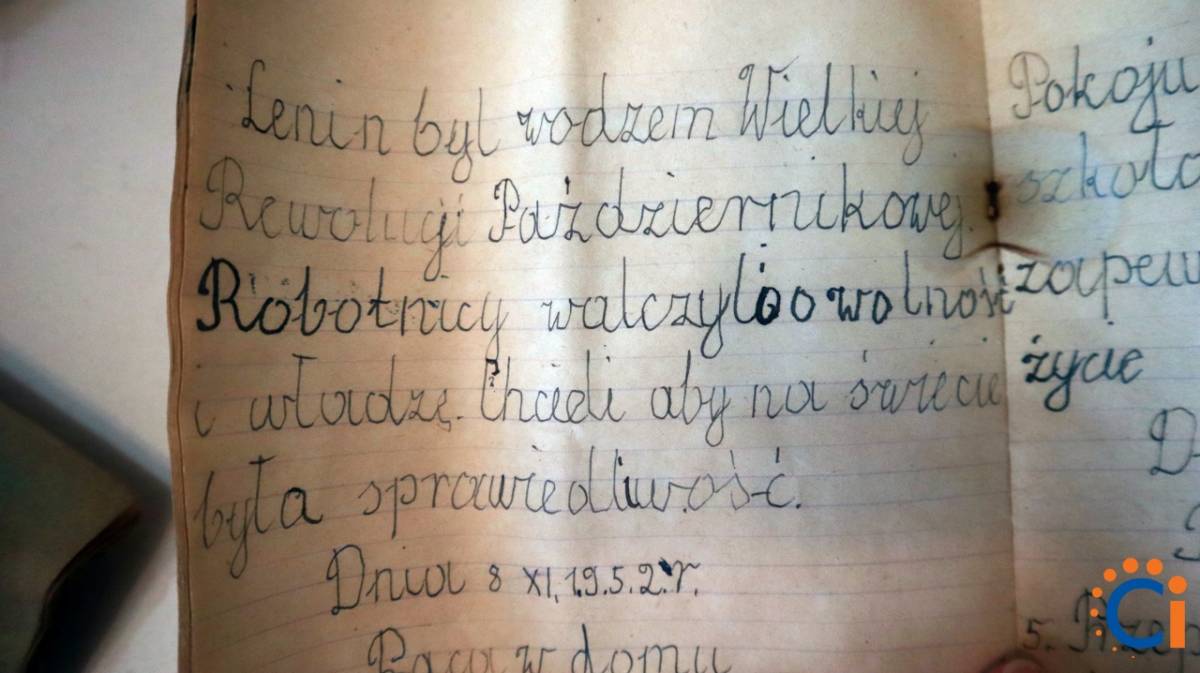 Lenin był wodzem Wielkiej
Rewolucji Październikowej.
Robotnicy walczyli o wolność
i władzę. Chcieli aby na świecie
była sprawiedliwość.
Dnia 8 XI, 1.9.5.2. r.
Praca w domu
Pokoju
szkoła
życie
Ci